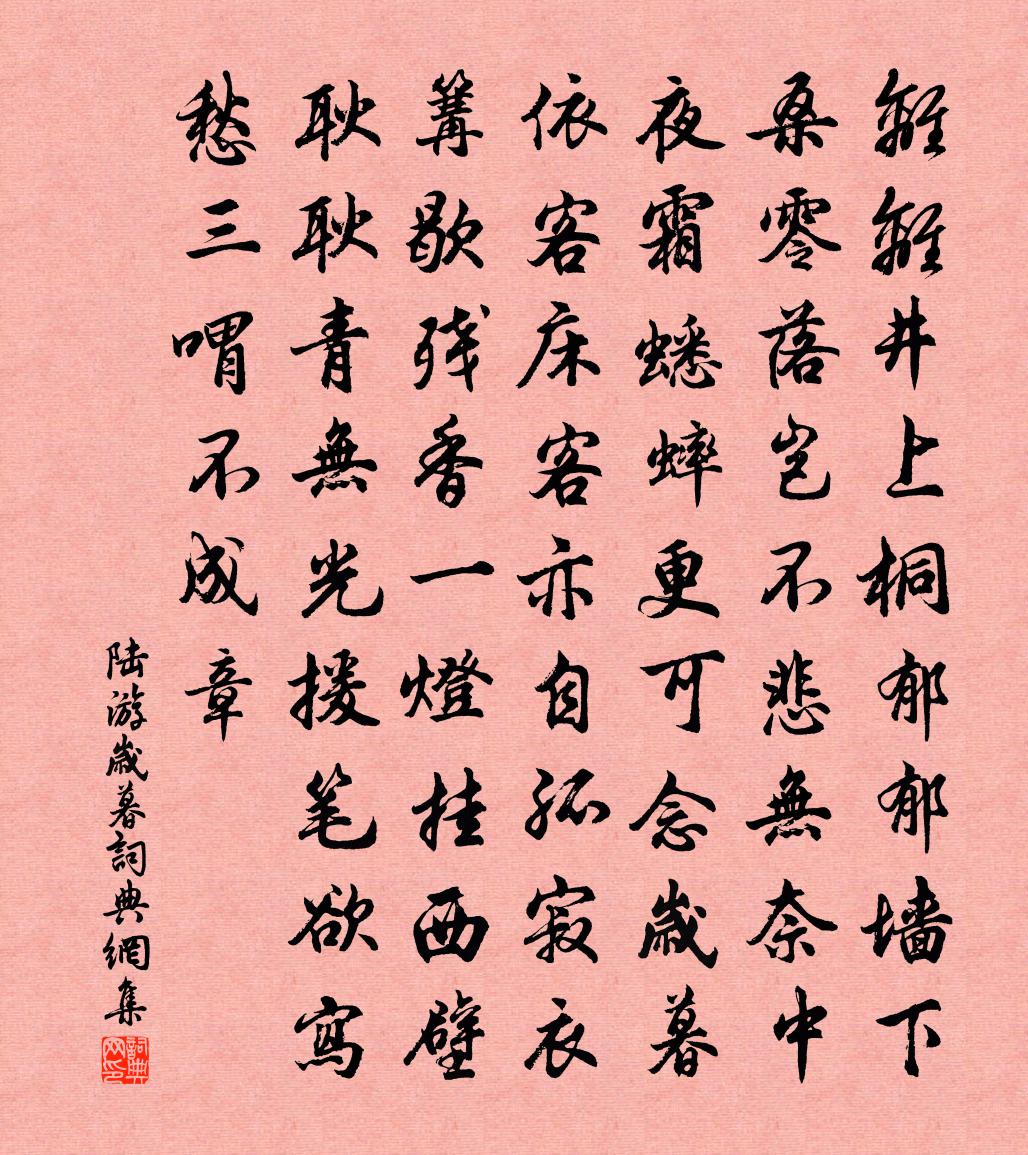 離離井上桐郁郁墙下
桑零落岂不悲無奈中
夜霜蟋蟀更可念歲暮
依客床客亦自孤寂衣
篝歇残香一燈挂西壁
耿耿青無光援笔欲寫
愁三喟不成章
陆游歲暮詞典網集